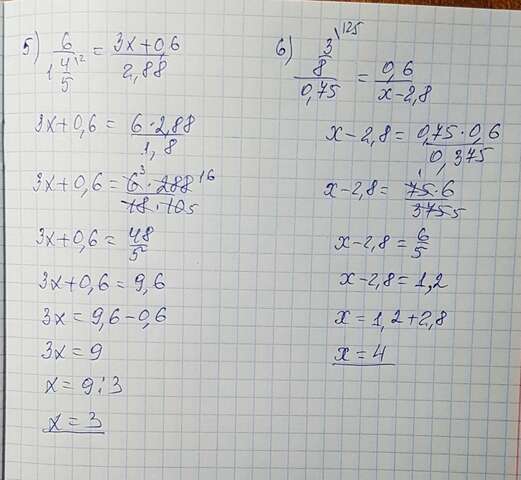 5) 6 / 1 4/5 \2 = 3x+0,6 / 2,88
3x+0,6 = 6·2,88 / 1,8
3x+0,6 = 6 3 · 288 16 / 18·10 5
3x+0,6 = 48 / 5
3x+0,6 = 9,6
3x = 9,6-0,6
3x = 9
x = 9:3
x = 3
6) 3/8 \125 / 0,75 = 0,6 / x-2,8
x-2,8 = 0,75·0,6 / 0,375
x-2,8 = 75 1 ·6 / 375 5
x-2,8 = 6/5
x-2,8 = 1,2
x = 1,2+2,8
x = 4